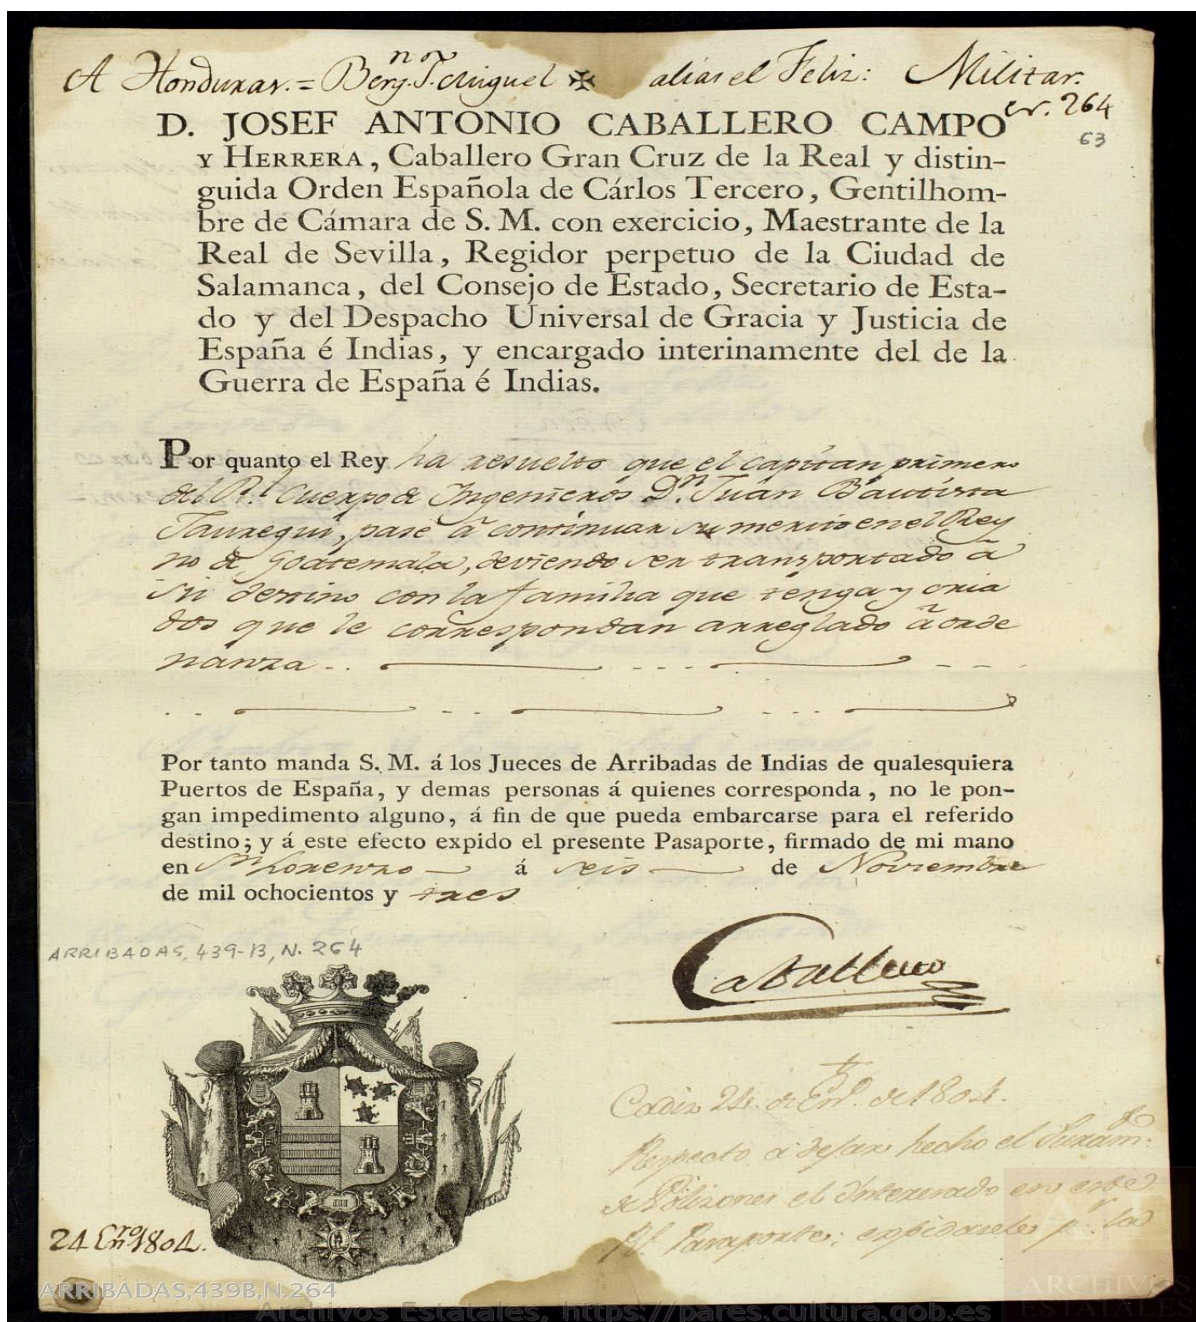 A Honduras. = Berg.n S.n Miguel ✠ alias el Feliz: Militar.
nr. 264
63
D. JOSEF ANTONIO CABALLERO CAMPO
Y HERRERA, Caballero Gran Cruz de la Real y distin-
guida Orden Española de Cárlos Tercero, Gentilhom-
bre de Cámara de S. M. con exercicio, Maestrante de la
Real de Sevilla, Regidor perpetuo de la Ciudad de
Salamanca, del Consejo de Estado, Secretario de Esta-
do y del Despacho Universal de Gracia y Justicia de
España é Indias, y encargado interinamente del de la
Guerra de España é Indias.
Por quanto el Rey ha resuelto que el capitan primero
del R.l Cuerpo de Ingenieros D.n Juan Bautista
Jauregui, pase à continuar su merito en el Rey
no de Goatemala, deviendo ser transportado à
su destino con la familia que tenga y cria
dos que le correspondan arreglado à orde
nanza
Por tanto manda S. M. á los Jueces de Arribadas de Indias de qualesquiera
Puertos de España, y demas personas á quienes corresponda, no le pon-
gan impedimento alguno, á fin de que pueda embarcarse para el referido
destino; y á este efecto expido el presente Pasaporte, firmado de mi mano
en S.n Lorenzo á seis de Noviembre
de mil ochocientos y tres
Caballero
ARRIBADAS, 439-B, N. 264
Cadiz 24. de En.o de 1804.
Respecto a dejar hecho el Juram.to
de Polizones el Interesado en este
R.l Pasaporte; expidasele p.r la
24 En.ro 1804.
ARRIBADAS,439B,N.264
Archivos Estatales, https://pares.cultura.gob.es
ARCHIVOS
ESTATALES